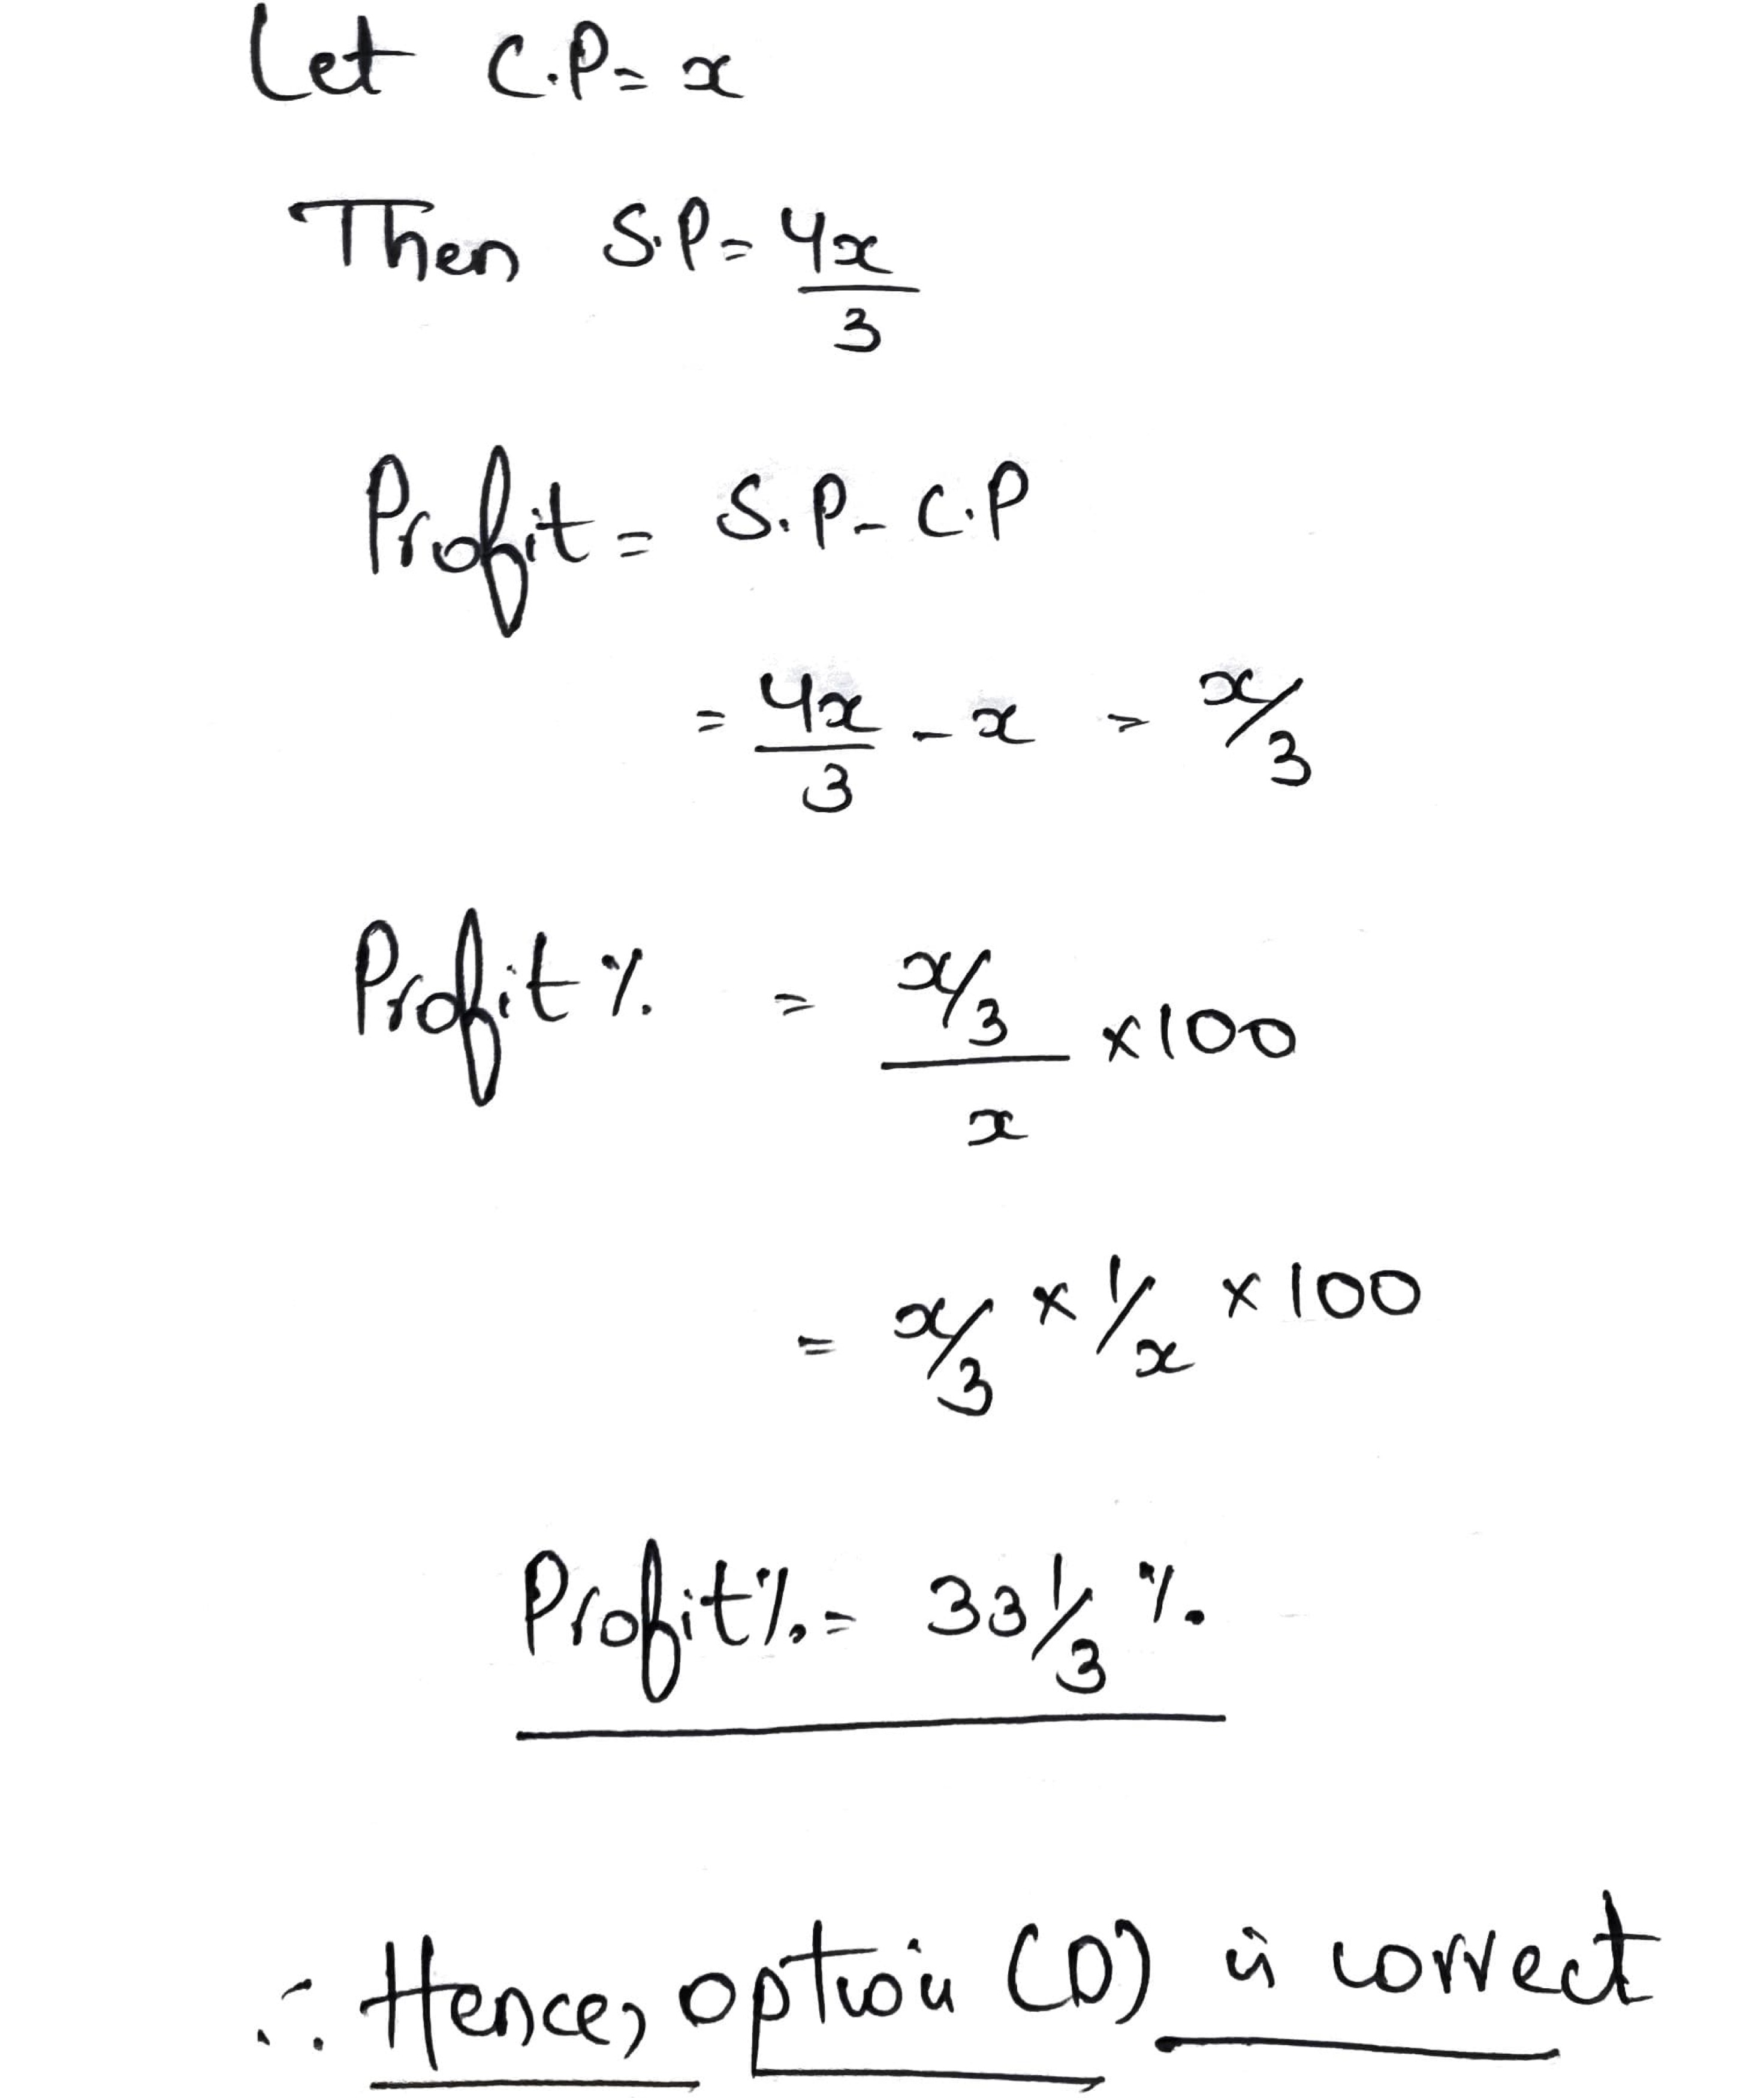 Let C.P = x
Then S.P = 4x/3
Profit = S.P - C.P
= 4x/3 - x = x/3
Profit % = (x/3)/x ×100
= x/3 × 1/x × 100
Profit % = 33 1/3 %
∴ Hence, option (D) is correct